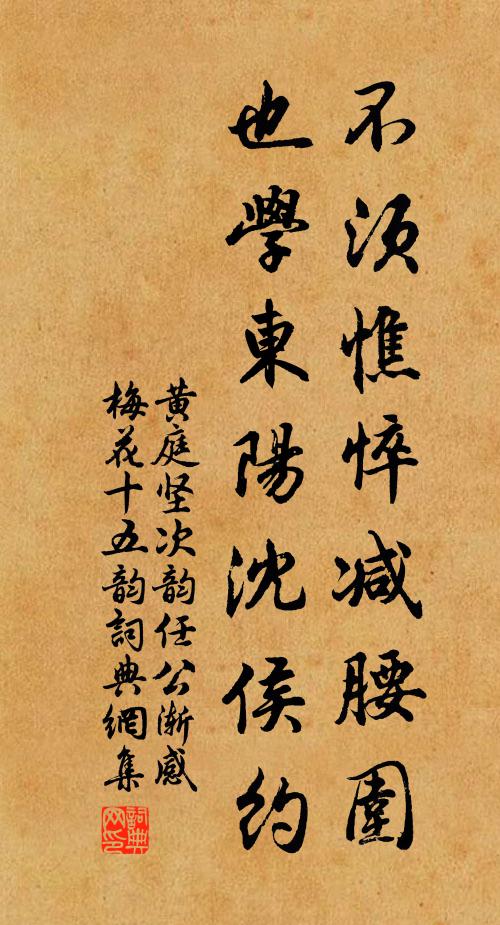 不須憔悴減腰圍
也學東陽沈侯約
黄庭坚次韵任公漸感
梅花十五韵詞典網集
詞典网印